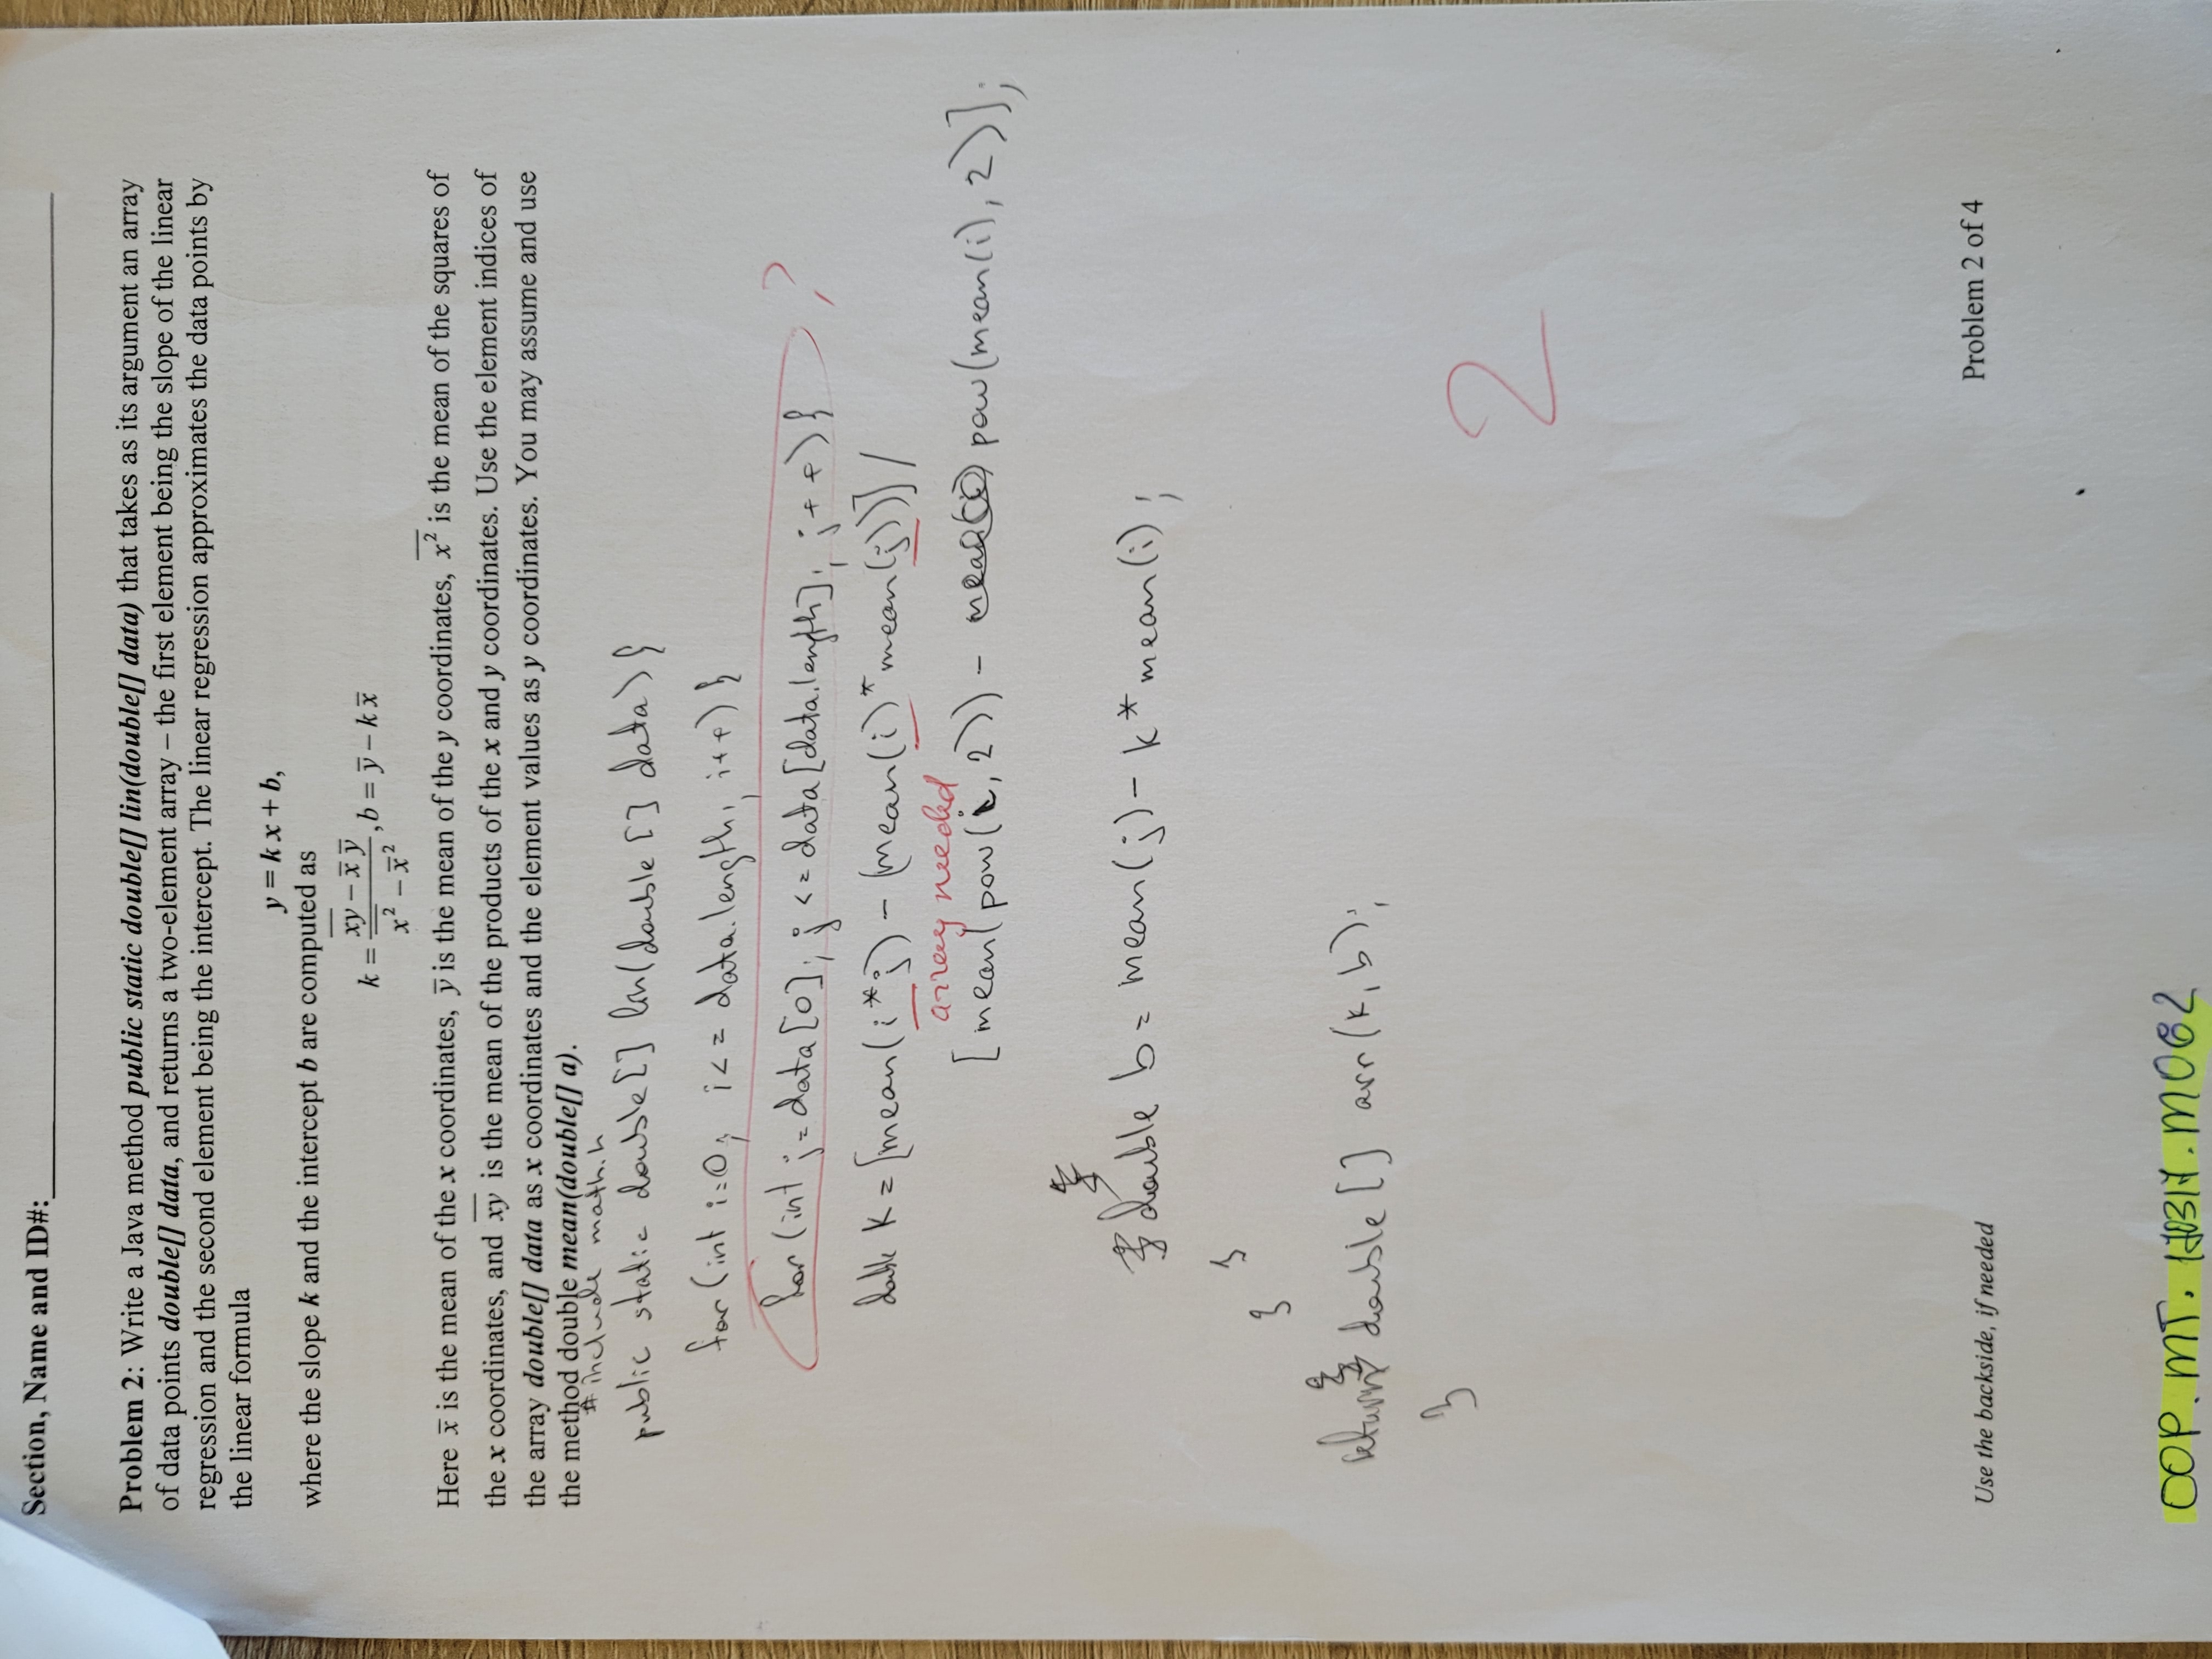 Section, Name and ID#:
Problem 2: Write a Java method public static double[] lin(double[] data) that takes as its argument an array
of data points double[] data, and returns a two-element array – the first element being the slope of the linear
regression and the second element being the intercept. The linear regression approximates the data points by
the linear formula
y = k x + b,
where the slope k and the intercept b are computed as
k = (\overline{xy} – x̄ ȳ) / (\overline{x²} – x̄²), b = ȳ – k x̄
Here x̄ is the mean of the x coordinates, ȳ is the mean of the y coordinates, \overline{x²} is the mean of the squares of
the x coordinates, and \overline{xy} is the mean of the products of the x and y coordinates. Use the element indices of
the array double[] data as x coordinates and the element values as y coordinates. You may assume and use
the method double mean(double[] a).
# include math.h
public static double[] lin(double[] data) {
for (int i=0; i<= data.length; i++) {
for (int j= data[0]; j<=data[data.length]; j++) {
?
double k = [mean(i*j) - (mean(i)*mean(j))] /
array needed
[mean(pow(i, 2)) - pow(mean(i), 2)];
double b= mean(j) - k*mean(i);
}
}
return double[] arr(k, b);
}
2
Use the backside, if needed
Problem 2 of 4
OOP. MT. 170317. M062